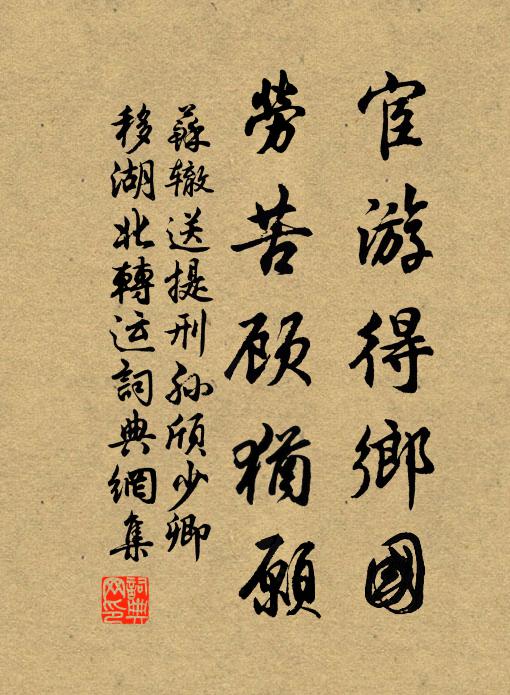 宦游得鄉國
勞苦顾猶願
蘇辙送提刑孙頎少卿
移湖北轉运詞典網集
詞典网印